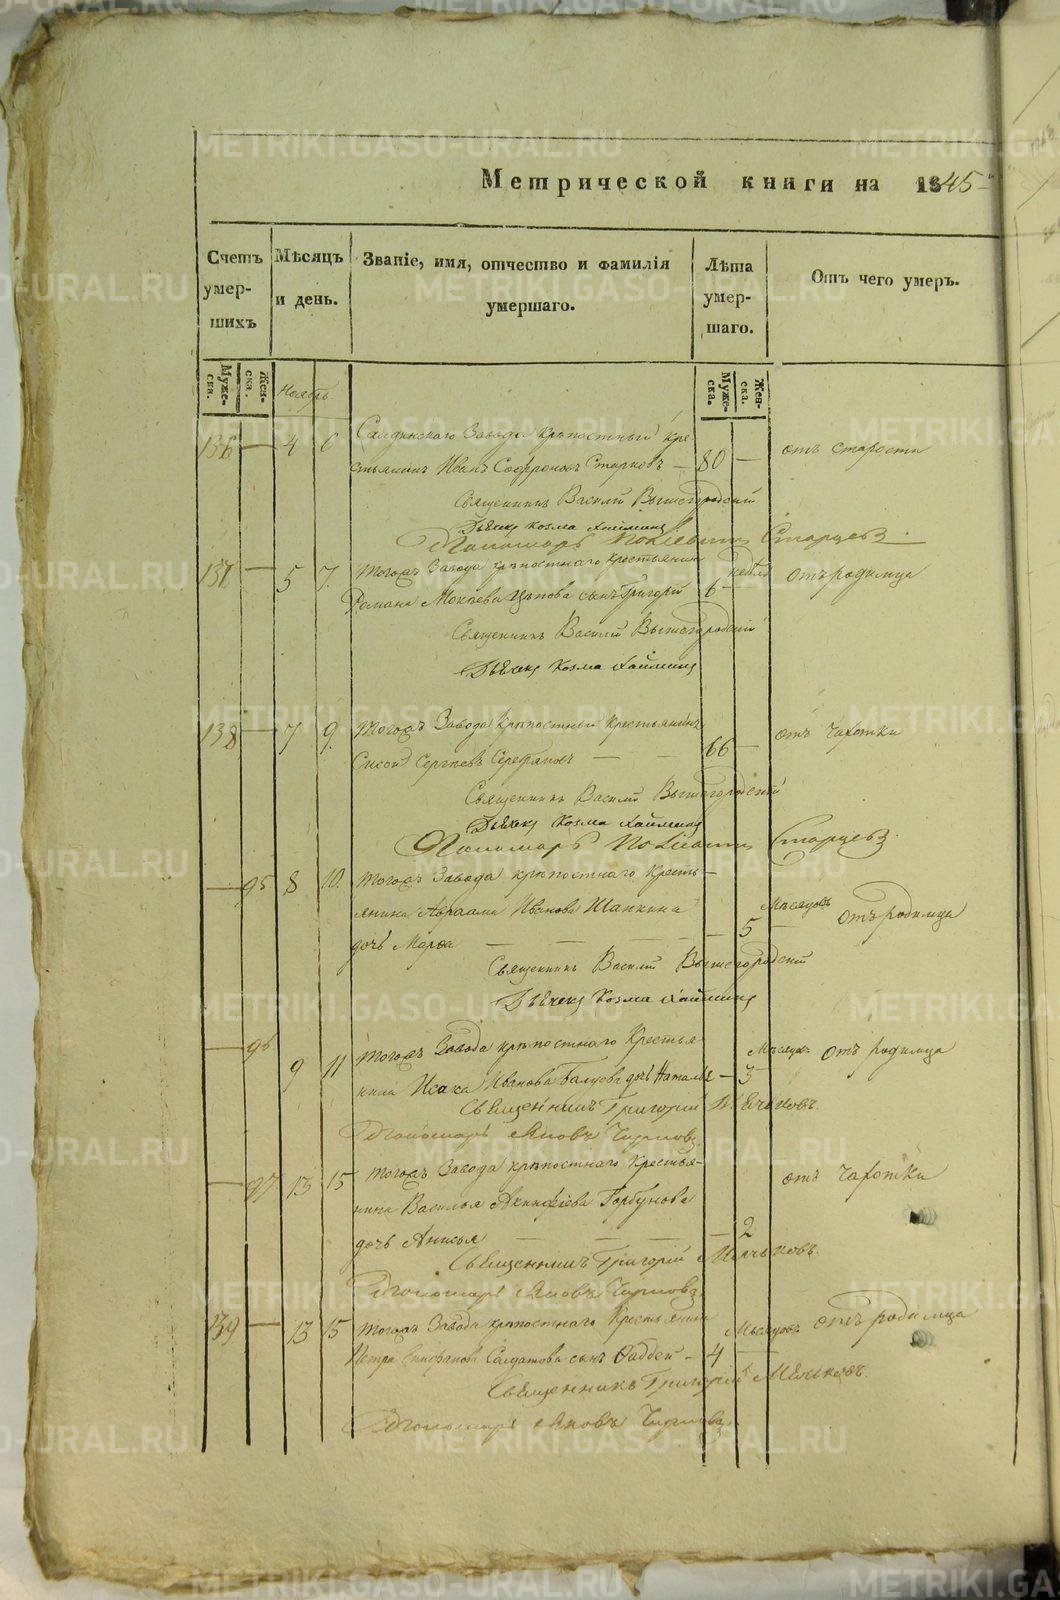 Метрической книги на 1845
Счетъ умер- шихъ
Мѣсяцъ и день.
Званіе, имя, отчество и фамилія умершаго.
Лѣта умер- шаго.
Отъ чего умеръ.
Муже- ска.
Жен- ска.
Ноябрь
Муже- ска.
Жен- ска.
136 — 4 6 Салдинскаго Завода крѣпостный кре-
стьянинъ Иванъ Софроновъ Старковъ — 80 — отъ старости
Священникъ Василій Вышегородскій
Дьячекъ Козма
Пономарь Старцевъ
137 — 5 7. Тогожъ Завода крѣпостнаго крестьянина недѣль отъ родимца
Романа Мокѣева сынъ Григорій 6 —
Священникъ Василій Вышегородскій
Дьячекъ Козма
138 — 7 9. Тогожъ Завода крѣпостный крестьянинъ отъ чахотки
Сысой Сергѣевъ — — 66 —
Священникъ Василій Вышегородскій
Дьячекъ Козма
Пономарь Старцевъ
— 95 8 10. Тогожъ Завода крѣпостнаго кресть-
янина Авраама Иванова Шапкина мѣсяцовъ отъ родимца
дочь Марѳа — — — — 5
Священникъ Василій Вышегородскій
Дьячекъ Козма
— 96 9 11 Тогожъ Завода крѣпостнаго крестья- мѣсяцовъ отъ родимца
нина Исака Иванова дочь Наталья — 3
Священникъ Григорій
Пономарь Яковъ
— 97 13 15 Тогожъ Завода крѣпостнаго крестья- отъ чахотки
нина Василья Акинфіева Горбунова
дочь Анисья — — — — 2
Священникъ Григорій
Пономарь Яковъ
139 — 13 15 Тогожъ Завода крѣпостнаго крестьянина мѣсяцовъ отъ родимца
Петра Салдатова сынъ Фаддей — 4 —
Священникъ Григорій
Пономарь Яковъ
METRIKI.GASO-URAL.RU